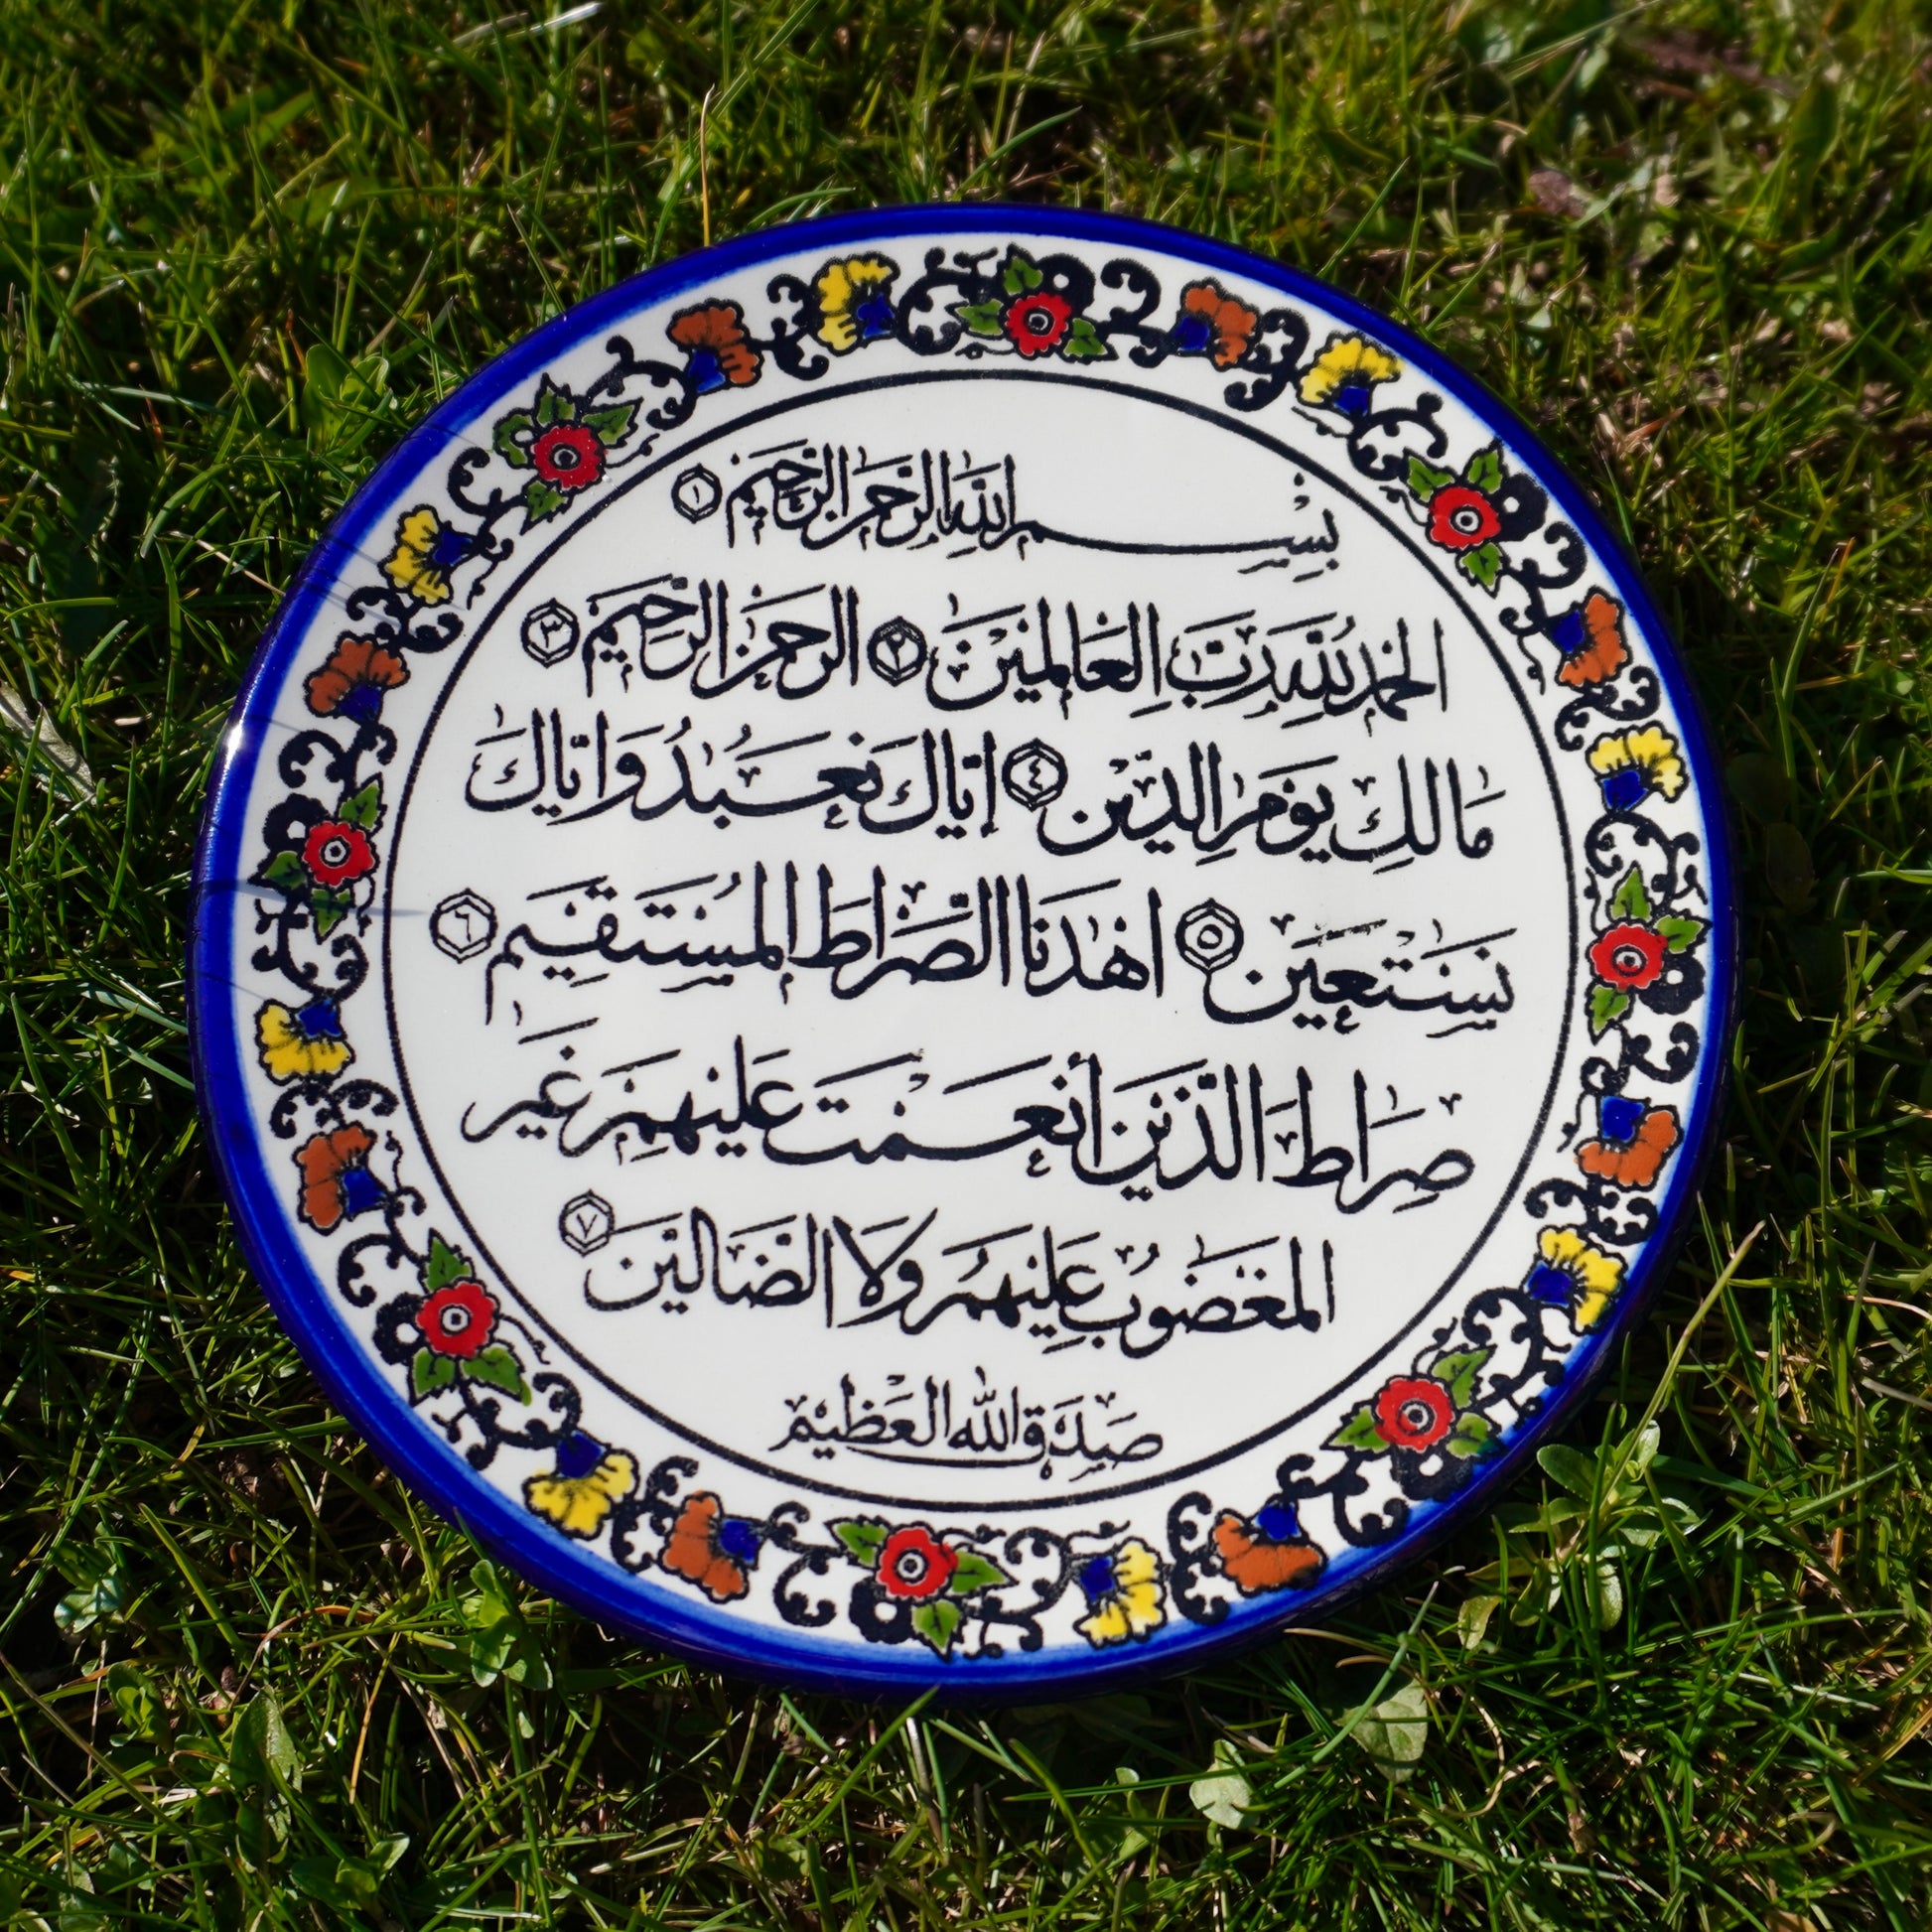 بِسْمِ اللَّهِ الرَّحْمَٰنِ الرَّحِيمِ ١
الْحَمْدُ لِلَّهِ رَبِّ الْعَالَمِينَ ٢ الرَّحْمَٰنِ الرَّحِيمِ ٣
مَالِكِ يَوْمِ الدِّينِ ٤ إِيَّاكَ نَعْبُدُ وَإِيَّاكَ
نَسْتَعِينُ ٥ اهْدِنَا الصِّرَاطَ الْمُسْتَقِيمَ ٦
صِرَاطَ الَّذِينَ أَنْعَمْتَ عَلَيْهِمْ غَيْرِ
الْمَغْضُوبِ عَلَيْهِمْ وَلَا الضَالِّينَ ٧
صَدَقَ اللَّهُ الْعَظِيمُ